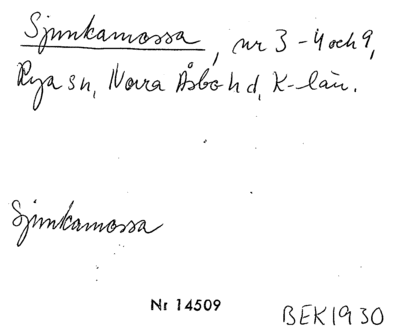 Sjunkamossa, nr 3-4 och 9,
Rya sn, Norra Åsbo hd, K-län.
Sjunkamossa
Nr 14509
BEK1930